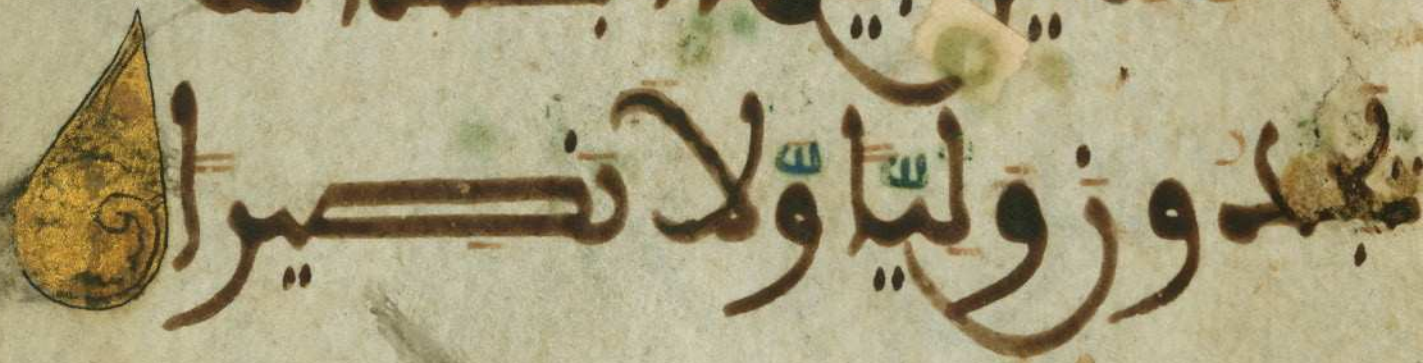 يَجِدُونَ وَلِيًّا وَّلَا نَصِيرًا